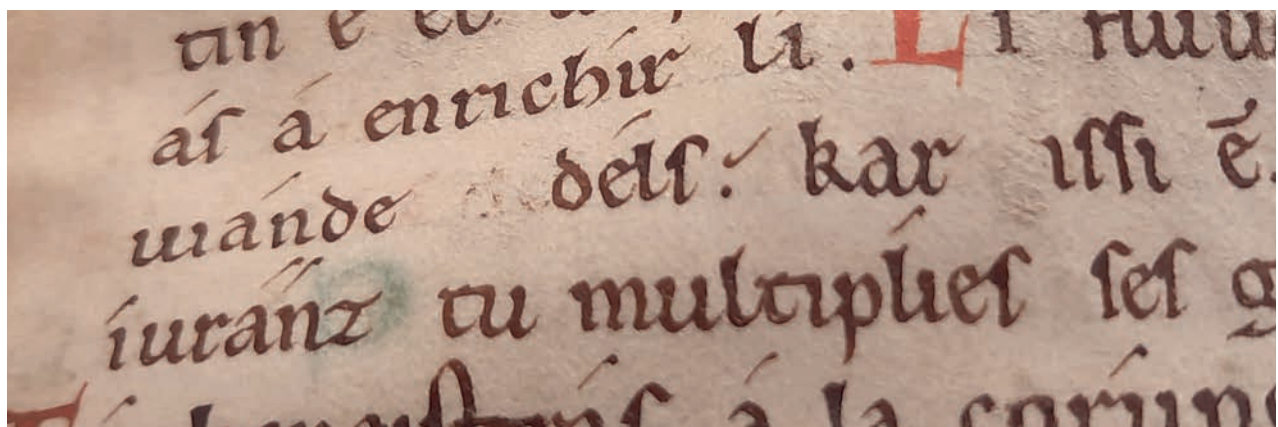 as á enrichir li. Li
uiande dels: kar issi ē.
iuranz tu multiplies ses
á la